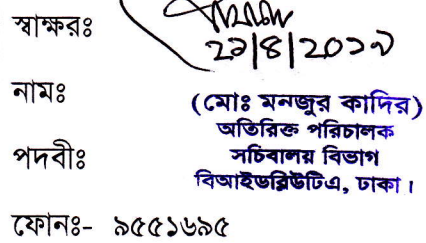 স্বাক্ষরঃ
২১|৪|২০১৯
নামঃ
(মোঃ মনজুর কাদির)
অতিরিক্ত পরিচালক
পদবীঃ
সচিবালয় বিভাগ
বিআইডব্লিউটিএ, ঢাকা।
ফোনঃ- ৯৫৫১৬৯৫